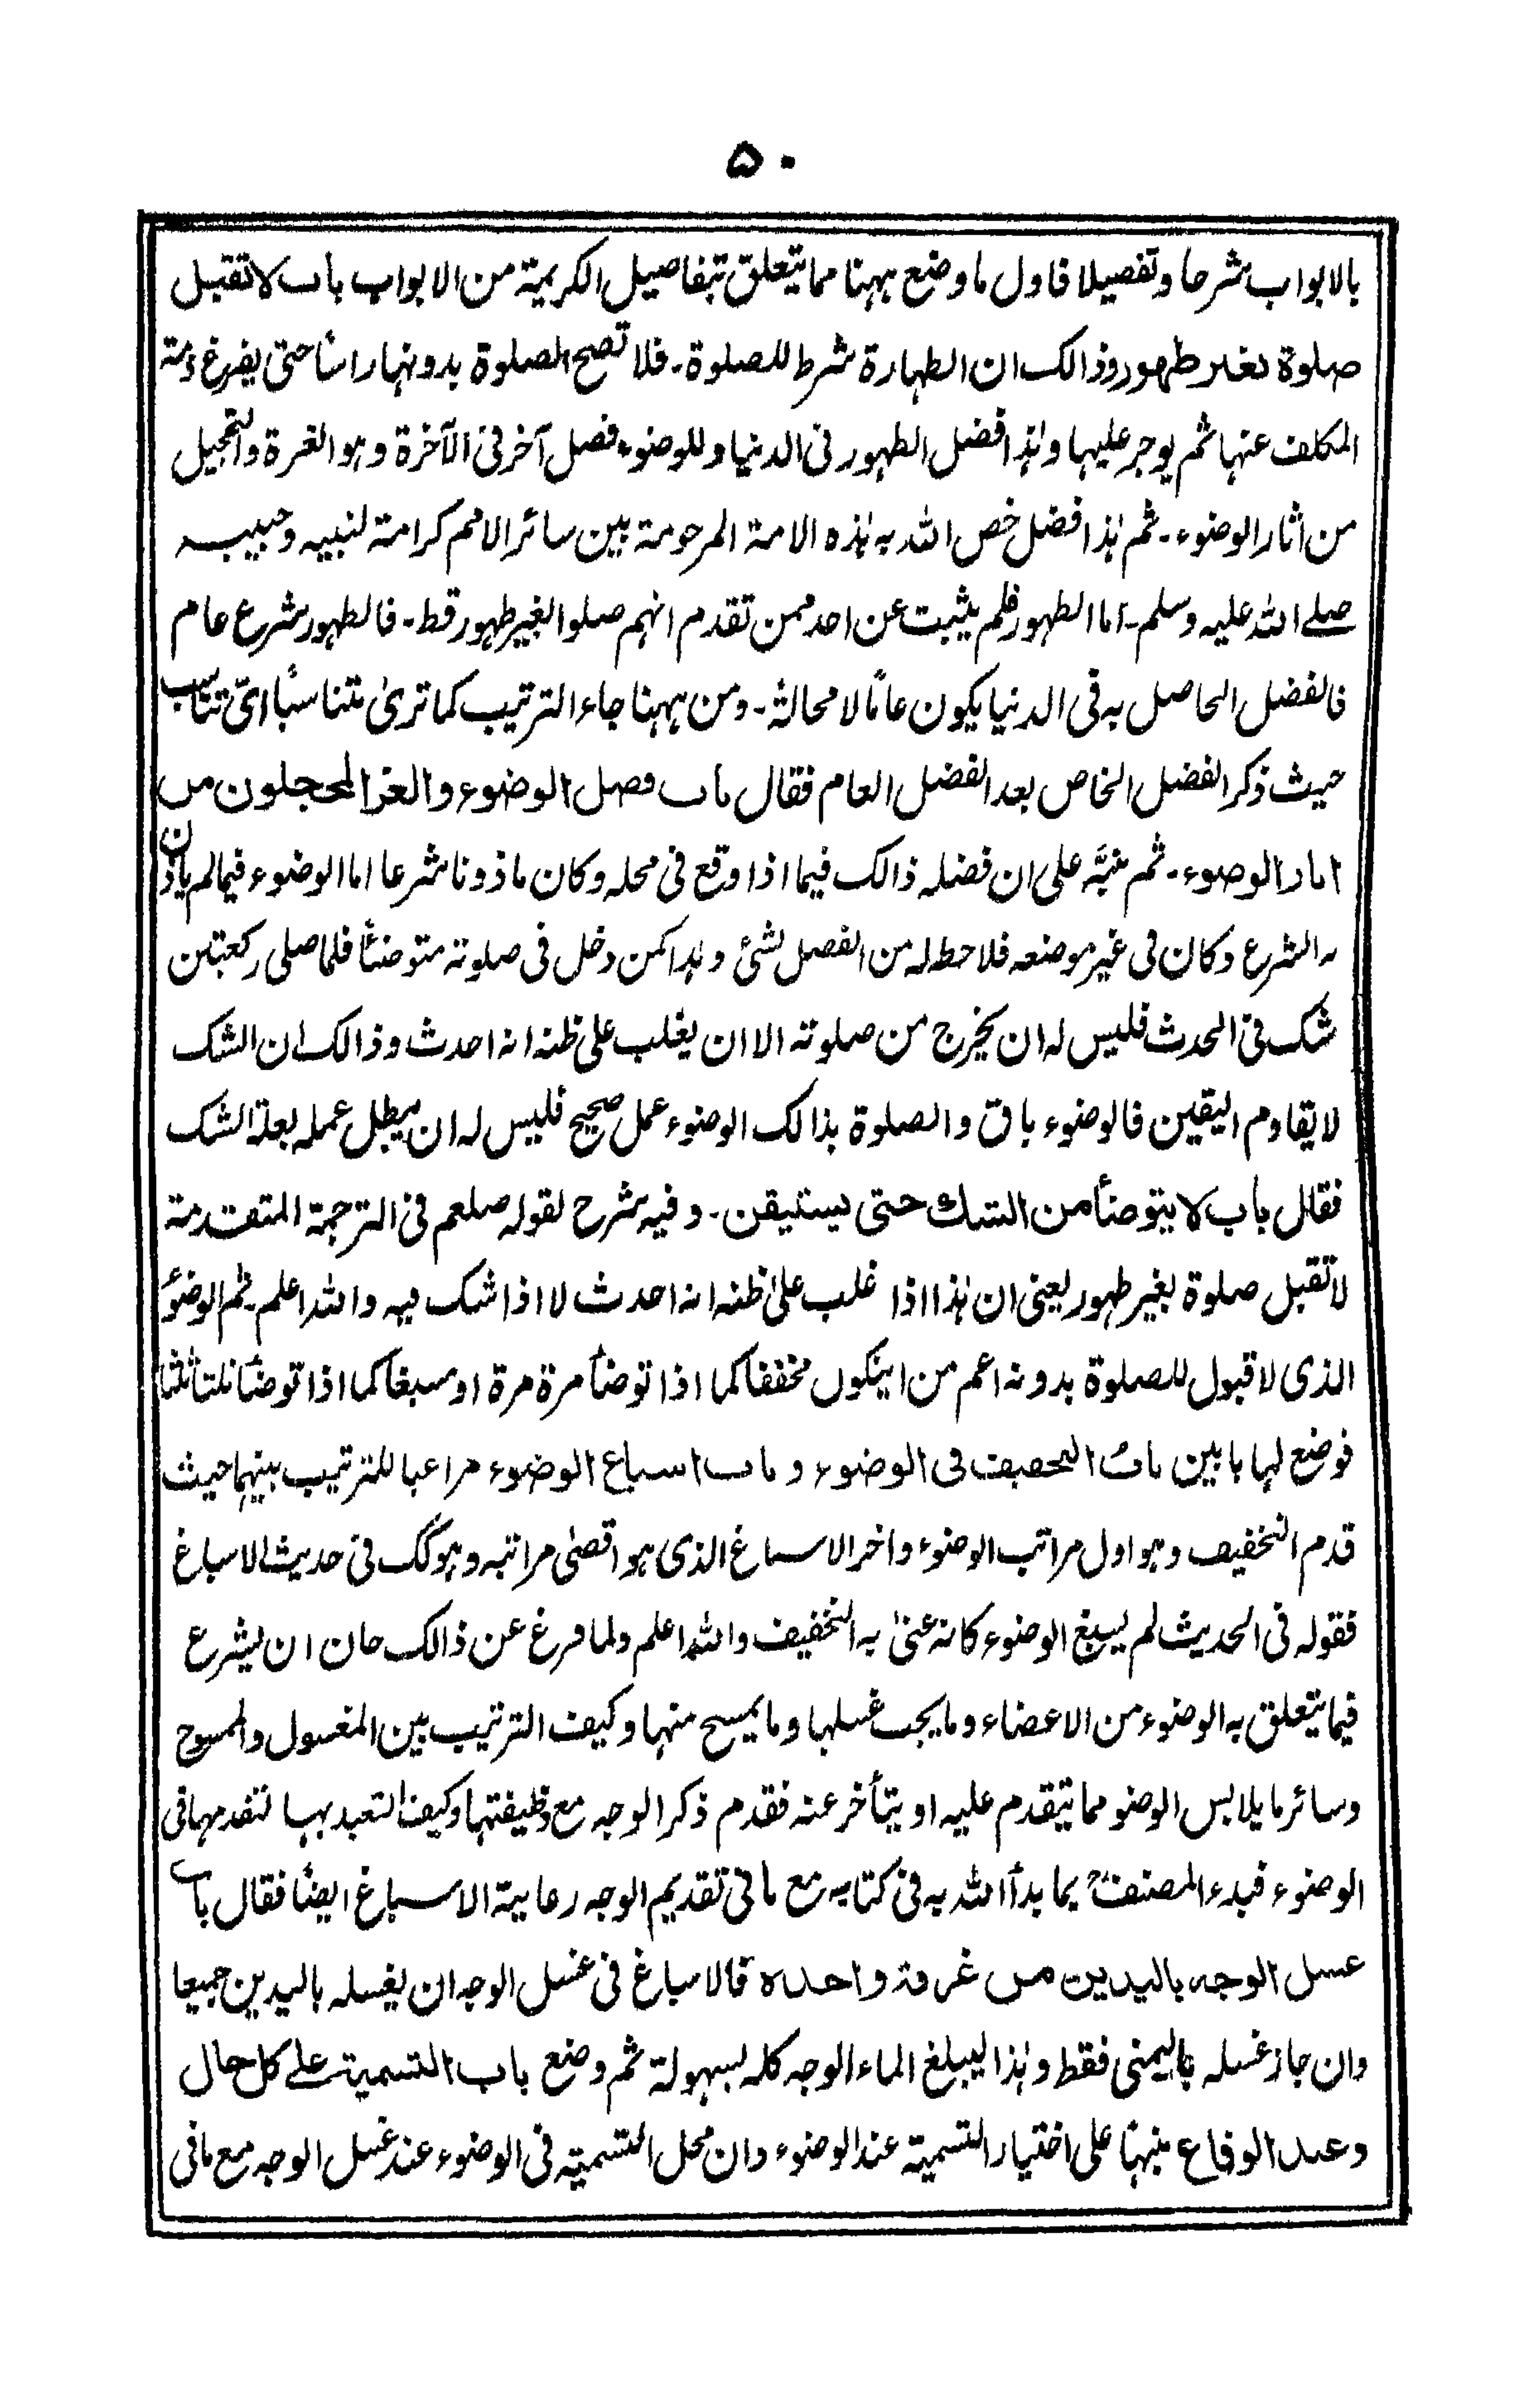 ۵۰
بالابواب شرحا وتفصيلا فاول ما وضع ههنا مما يتعلق بتفاصيل الكريمة من الابواب باب لا تقبل
صلوة بغير طهور وذالك ان الطهارة شرط للصلوة۔ فلا تصح الصلوة بدونها راسًا حتى يفرغ ذمة
المكلف عنها ثم يوجر عليها وهذا فضل الطهور فى الدنيا وللوضوء فضل آخر فى الآخرة وهو الغرة والتحجيل
من اثار الوضوء۔ ثم هذا فضل خص الله به هذه الامة المرحومة بين سائر الامم كرامة لنبيه وحبيبه
صلے الله عليه وسلم۔ اما الطهور فلم يثبت عن احد ممن تقدم انهم صلوا بغير طهور قط۔ فالطهور شرع عام
فالفضل الحاصل به فى الدنيا يكون عامًا لا محالة۔ ومن ههنا جاء الترتيب كما ترىٰ متناسبًا اىّ تناسب
حيث ذكر الفضل الخاص بعد الفضل العام فقال باب فضل الوضوء والغر المحجلون من
اثار الوضوء۔ ثم نبَّه على ان فضله ذالك فيما اذا وقع فى محله وكان ماذونا شرعا اما الوضوء فيما لم ياذن
به الشرع وكان فى غير موضعه فلا حظ له من الفضل لشئ وهذا كمن دخل فى صلوته متوضئًا فلما صلى ركعتين
شك فى الحدث فليس له ان يخرج من صلوته الا ان يغلب على ظنه انه احدث وذالك لان الشك
لا يقاوم اليقين فالوضوء باق والصلوة بذالك الوضوء عمل صحيح فليس له ان يبطل عمله بعلة الشك
فقال باب لا يتوضأ من الشك حتى يستيقن۔ وفيه شرح لقوله صلعم فى الترجمة المتقدمة
لا تقبل صلوة بغير طهور يعنى ان هٰذا اذا غلب علىٰ ظنه انه احدث لا اذا شك فيه والله اعلم۔ ثم الوضوءُ
الذى لا قبول للصلوة بدونه اعم من ايكون مخففا كما اذا توضأ مرة مرة او مسبغا كما اذا توضأ ثلثا ثلثا
فوضع لها بابين باب التخفيف فى الوضوء وباب اسباغ الوضوء مراعيا للترتيب بينهما حيث
قدم التخفيف وهو اول مراتب الوضوء واخر الاسباغ الذى هو اقصىٰ مراتبه وهو كك فى حديث الاسباغ
فقوله فى الحديث لم يسبغ الوضوء كانه عنىٰ به التخفيف والله اعلم ولما فرغ عن ذالك حان ان يشرع
فيما يتعلق به الوضوء من الاعضاء وما يجب غسلها وما يمسح منها وكيف الترتيب بين المغسول والممسوح
وسائر ما يلابس الوضو مما يتقدم عليه او يتأخر عنه فقدم ذكر الوجه مع وظيفتها وكيف التعبد بها لتقدمها فى
الوضوء فبدء المصنفؒ بما بدأ الله به فى كتابه مع ما فى تقديم الوجه رعاية الاسباغ ايضًا فقال باب
غسل الوجه باليدين من غرفة واحدة فالاسباغ فى غسل الوجه ان يغسله باليدين جميعا
وان جاز غسله باليمنى فقط وهٰذا ليبلغ الماء الوجه كله بسهولة ثم وضع باب التسمية علے كل حال
وعند الوقاع منبها على اختيار التسمية عند الوضوء وان محل التسمية فى الوضوء عند غسل الوجه مع ما فى